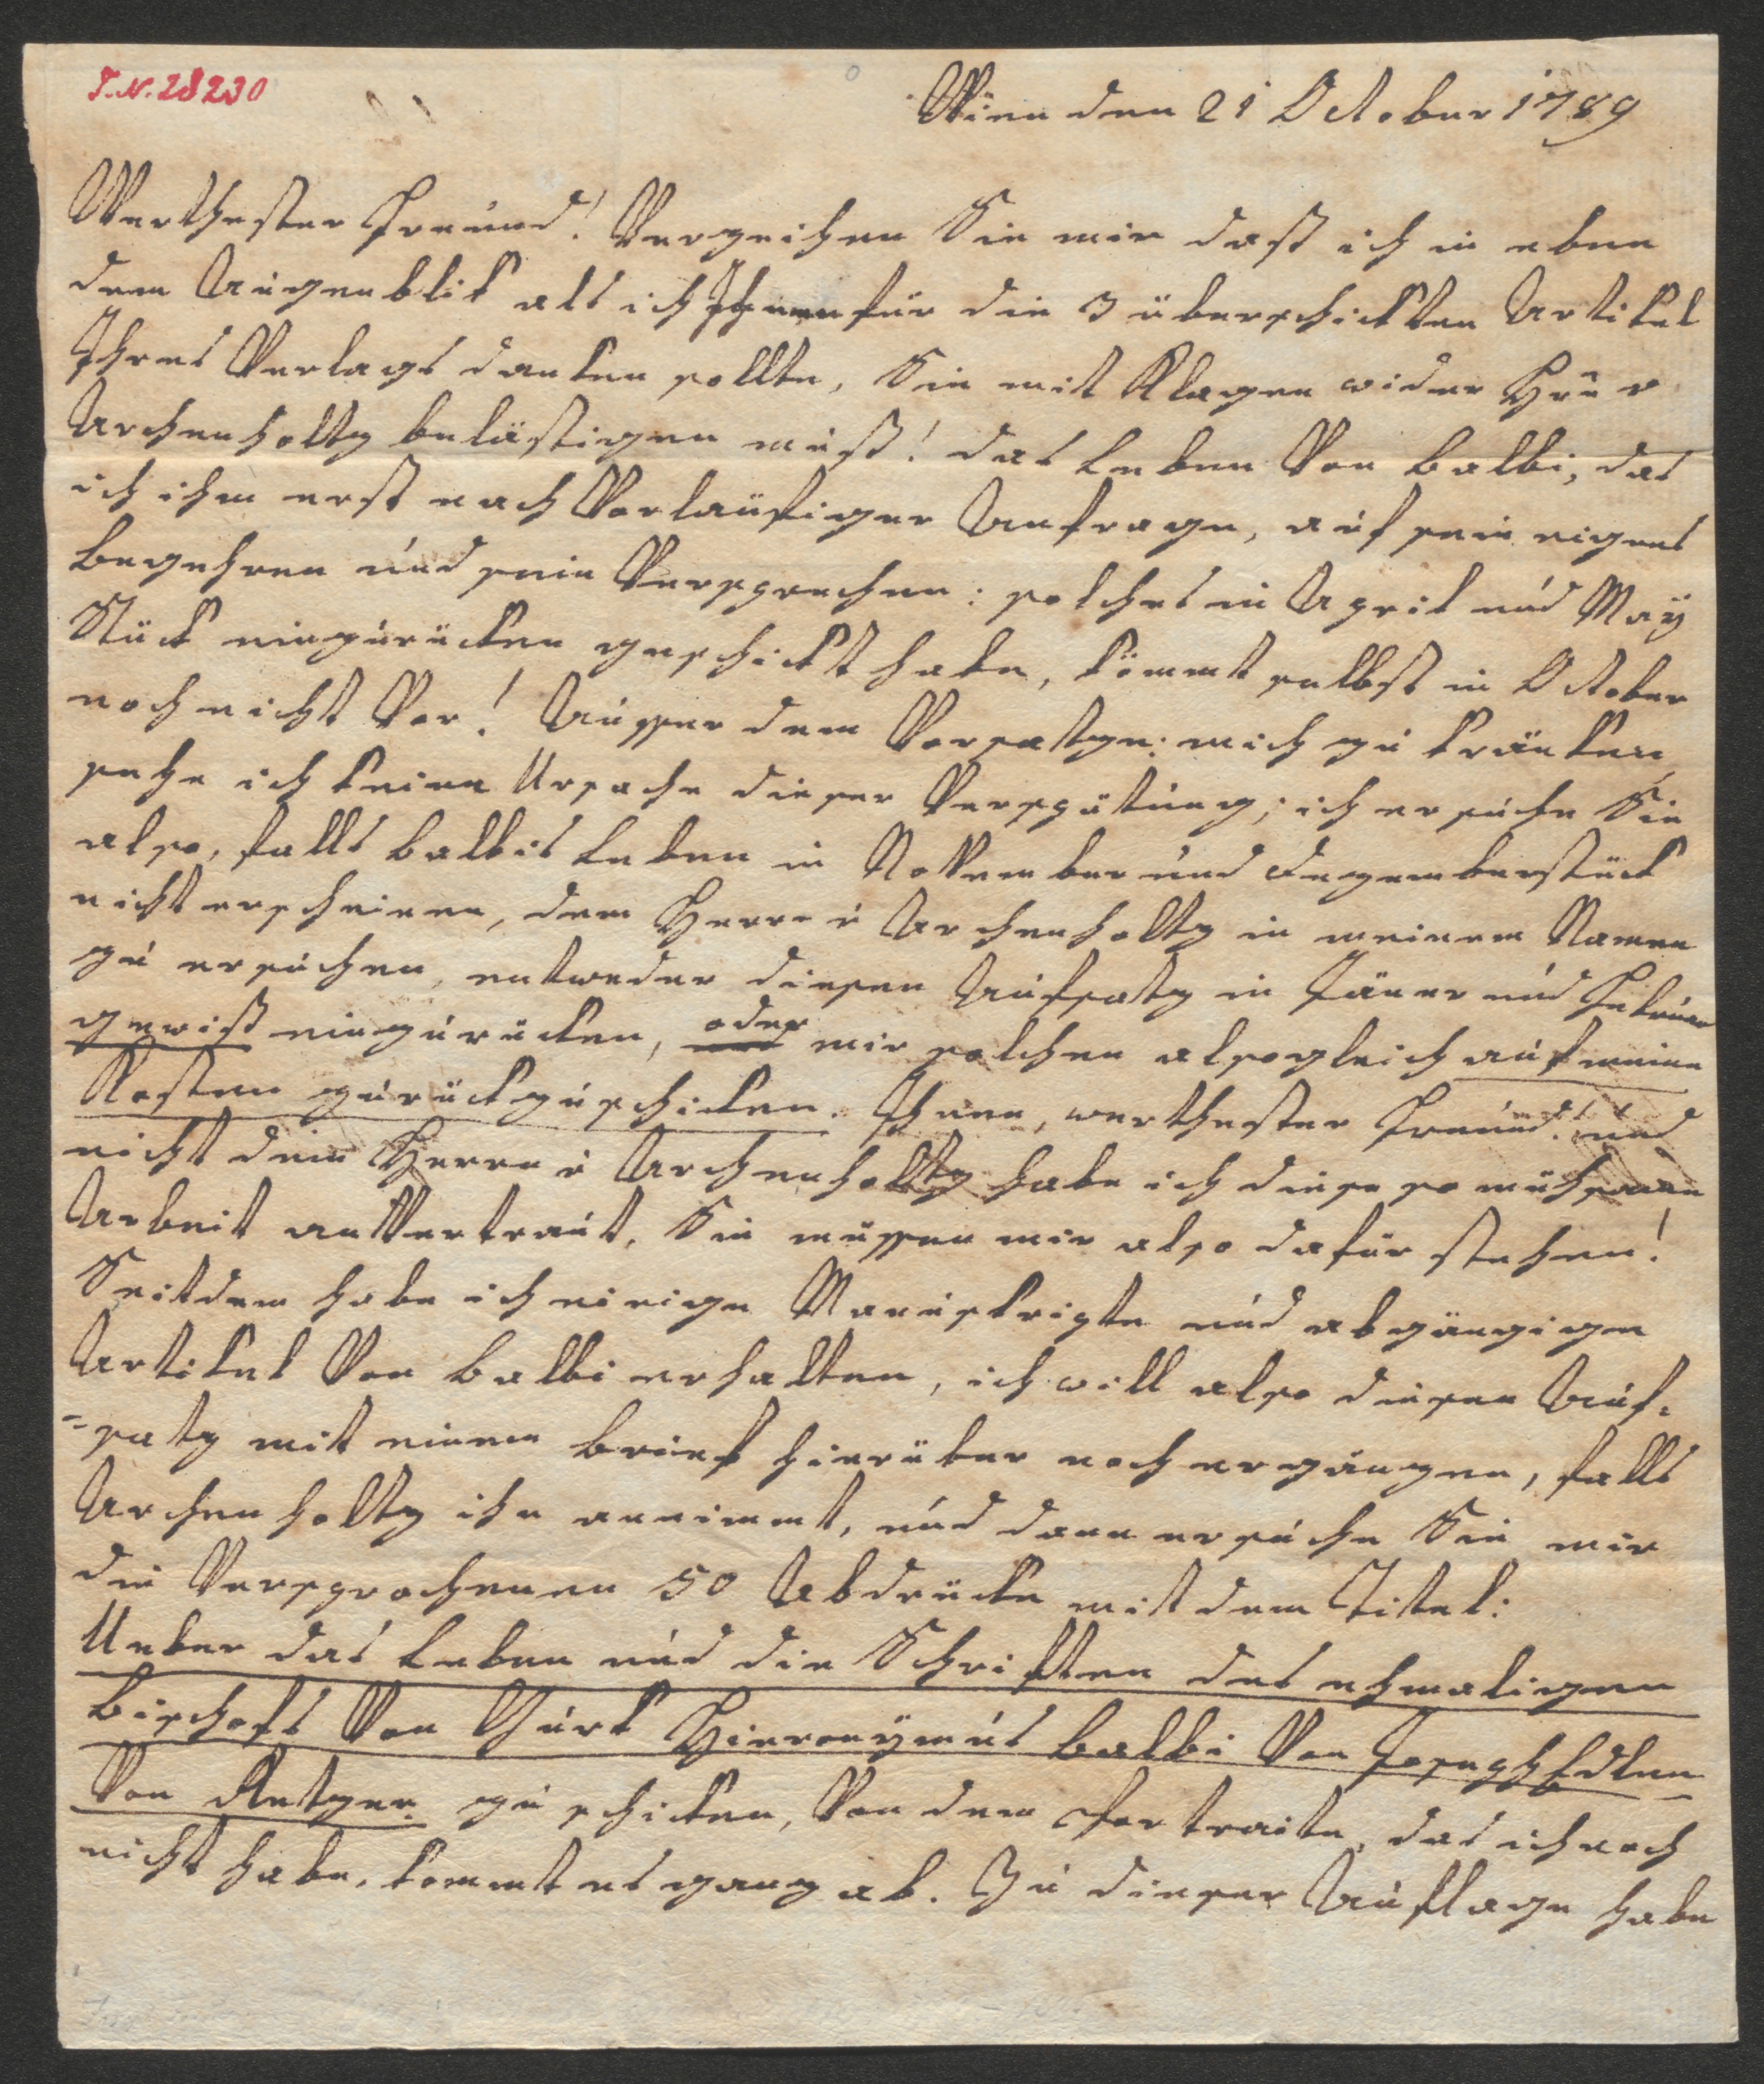 I.N. 28230
Wien den 21 October 1789
Werthester Freund! Verzeihen Sie mir daß ich in eben
dem Augenblik als ich Ihnen für die 3 überschickten Artikel
Ihres Verlags danken sollte, Sie mit Klagen wider Hrn v
Archenholtz belästigen muß! das Leben Von Balbi, das
ich ihm erst nach Vorläufiger Anfrage, auf sein eignes
Begehren und sein Versprechen: solches in April und May
Stück einzurücken geschickt habe, kömmt selbst in October
noch nicht Vor! Ausser dem Vorsatze: mich zu kränken,
sehe ich keine Ursache dieser Verspätung; ich ersuche Sie
also, falls Balbis Leben in November und Dezemberstück
nicht erscheinen, dem Herrn v Archenholtz in meinem Namen
zu ersuchen, entweder diesen Aufsatz in Jäner und Februar
gewiß einzurücken, oder mir solchen alsogleich auf meine
Kosten zurückzuschicken. Ihnen, werthester Freund! und
nicht dem Herrn v Archenholtz habe ich diese so mühsame
Arbeit anVertraut, Sie müssen mir also dafür stehen!
Seitdem habe ich einige Manuskripte und abgängigen
Artikel Von Balbi erhalten, ich will also diesen Auf-
=satz mit einem Brief hierüber noch ergänzen, falls
Archenholtz ihn annimmt, und dann ersuche Sie mir
die Versprochenen 50 Abdrücke mit dem Titel:
Ueber das Leben und die Schriften des ehmaligen
Bischofs Von Gurk Hieronÿmus Balbi Von Joseph Edlen
Von Retzer. zu schicken, Von dem Portraite, das ich noch
nicht habe, kommt es ganz ab. Zu dieser Auflage habe